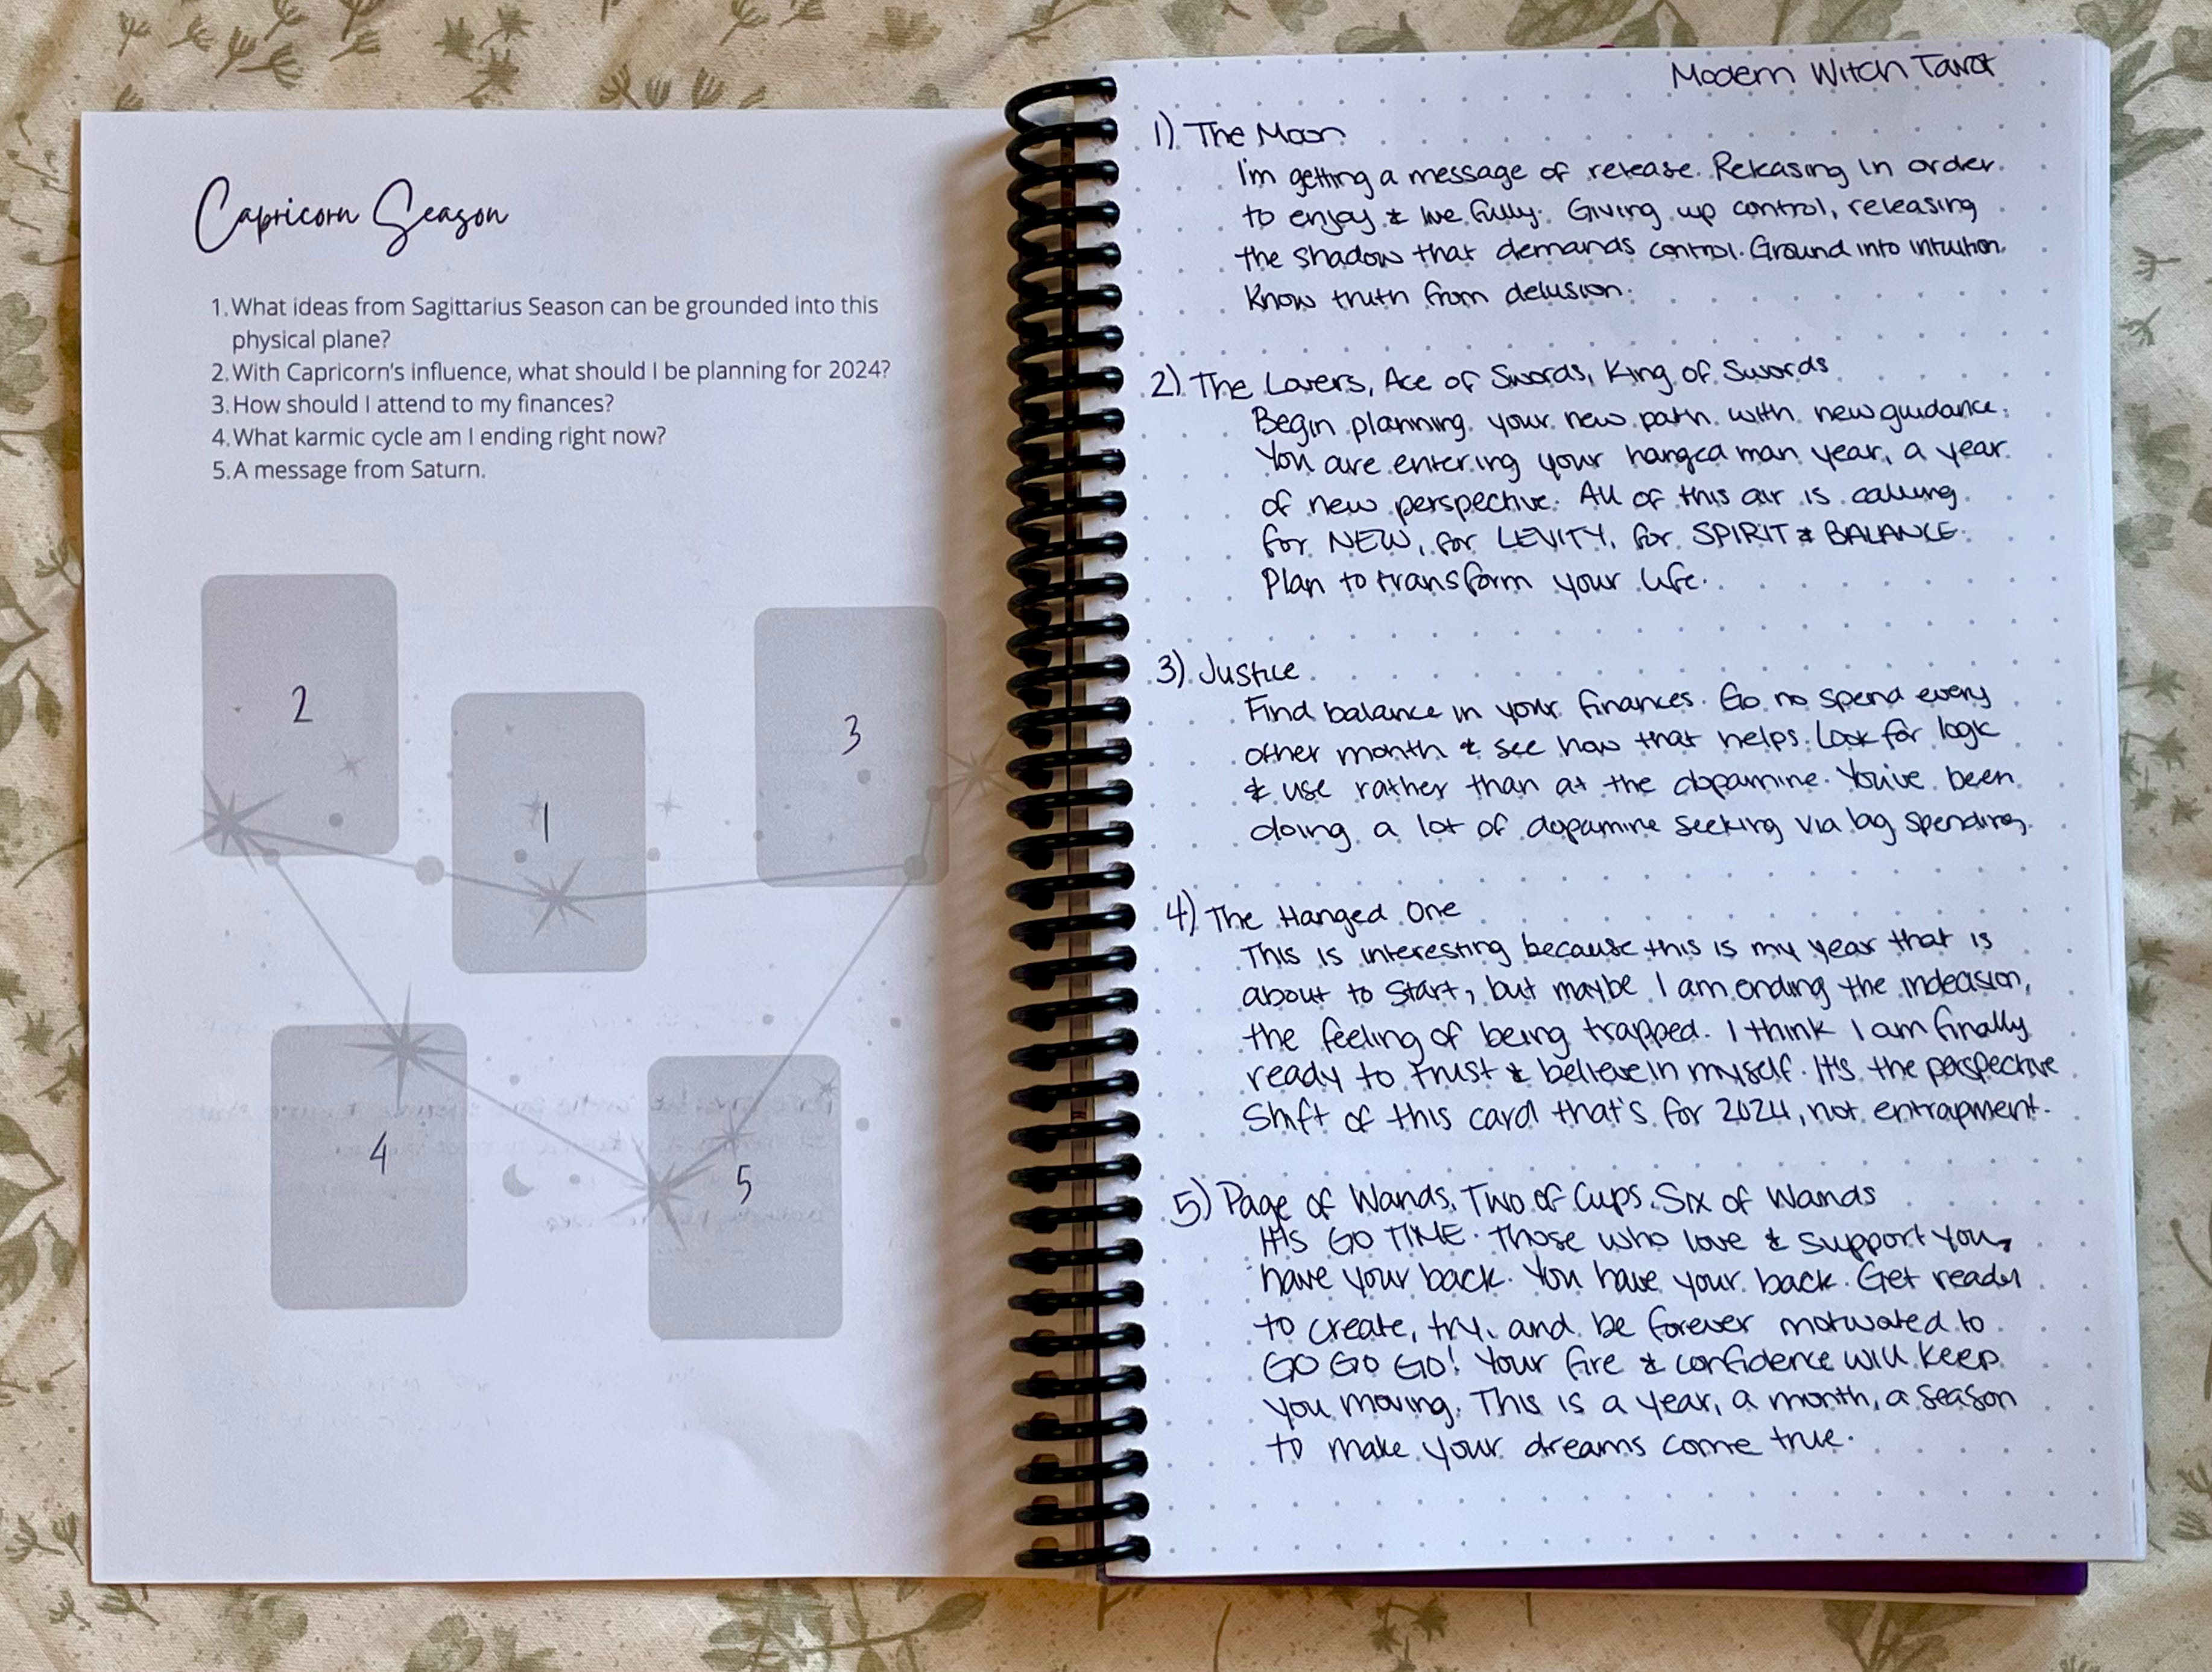 Capricorn Season
1. What ideas from Sagittarius Season can be grounded into this
physical plane?
2. With Capricorn's influence, what should I be planning for 2024?
3. How should I attend to my finances?
4. What karmic cycle am I ending right now?
5. A message from Saturn.
2
3
1
4
5
Modern Witch Tarot
1) The Moon
I'm getting a message of release. Releasing in order
to enjoy & live fully. Giving up control, releasing
the shadow that demands control. Ground into intuition.
Know truth from delusion.
2) The Lovers, Ace of Swords, King of Swords
Begin planning your new path with new guidance.
You are entering your hanged man year, a year
of new perspective. All of this air is calling
for NEW, for LEVITY, for SPIRIT & BALANCE.
Plan to transform your life.
3) Justice
Find balance in your finances. Go no spend every
other month & see how that helps. Look for logic
& use rather than at the dopamine. You've been
doing a lot of dopamine seeking via big spending.
4) The Hanged One
This is interesting because this is my year that is
about to start, but maybe I am ending the indecision,
the feeling of being trapped. I think I am finally
ready to trust & believe in myself. It's the perspective
shift of this card that's for 2024, not entrapment.
5) Page of Wands, Two of Cups, Six of Wands
It's GO TIME. Those who love & support you,
have your back. You have your back. Get ready
to create, try, and be forever motivated to
GO GO GO! Your fire & confidence will keep
you moving. This is a year, a month, a season
to make your dreams come true.